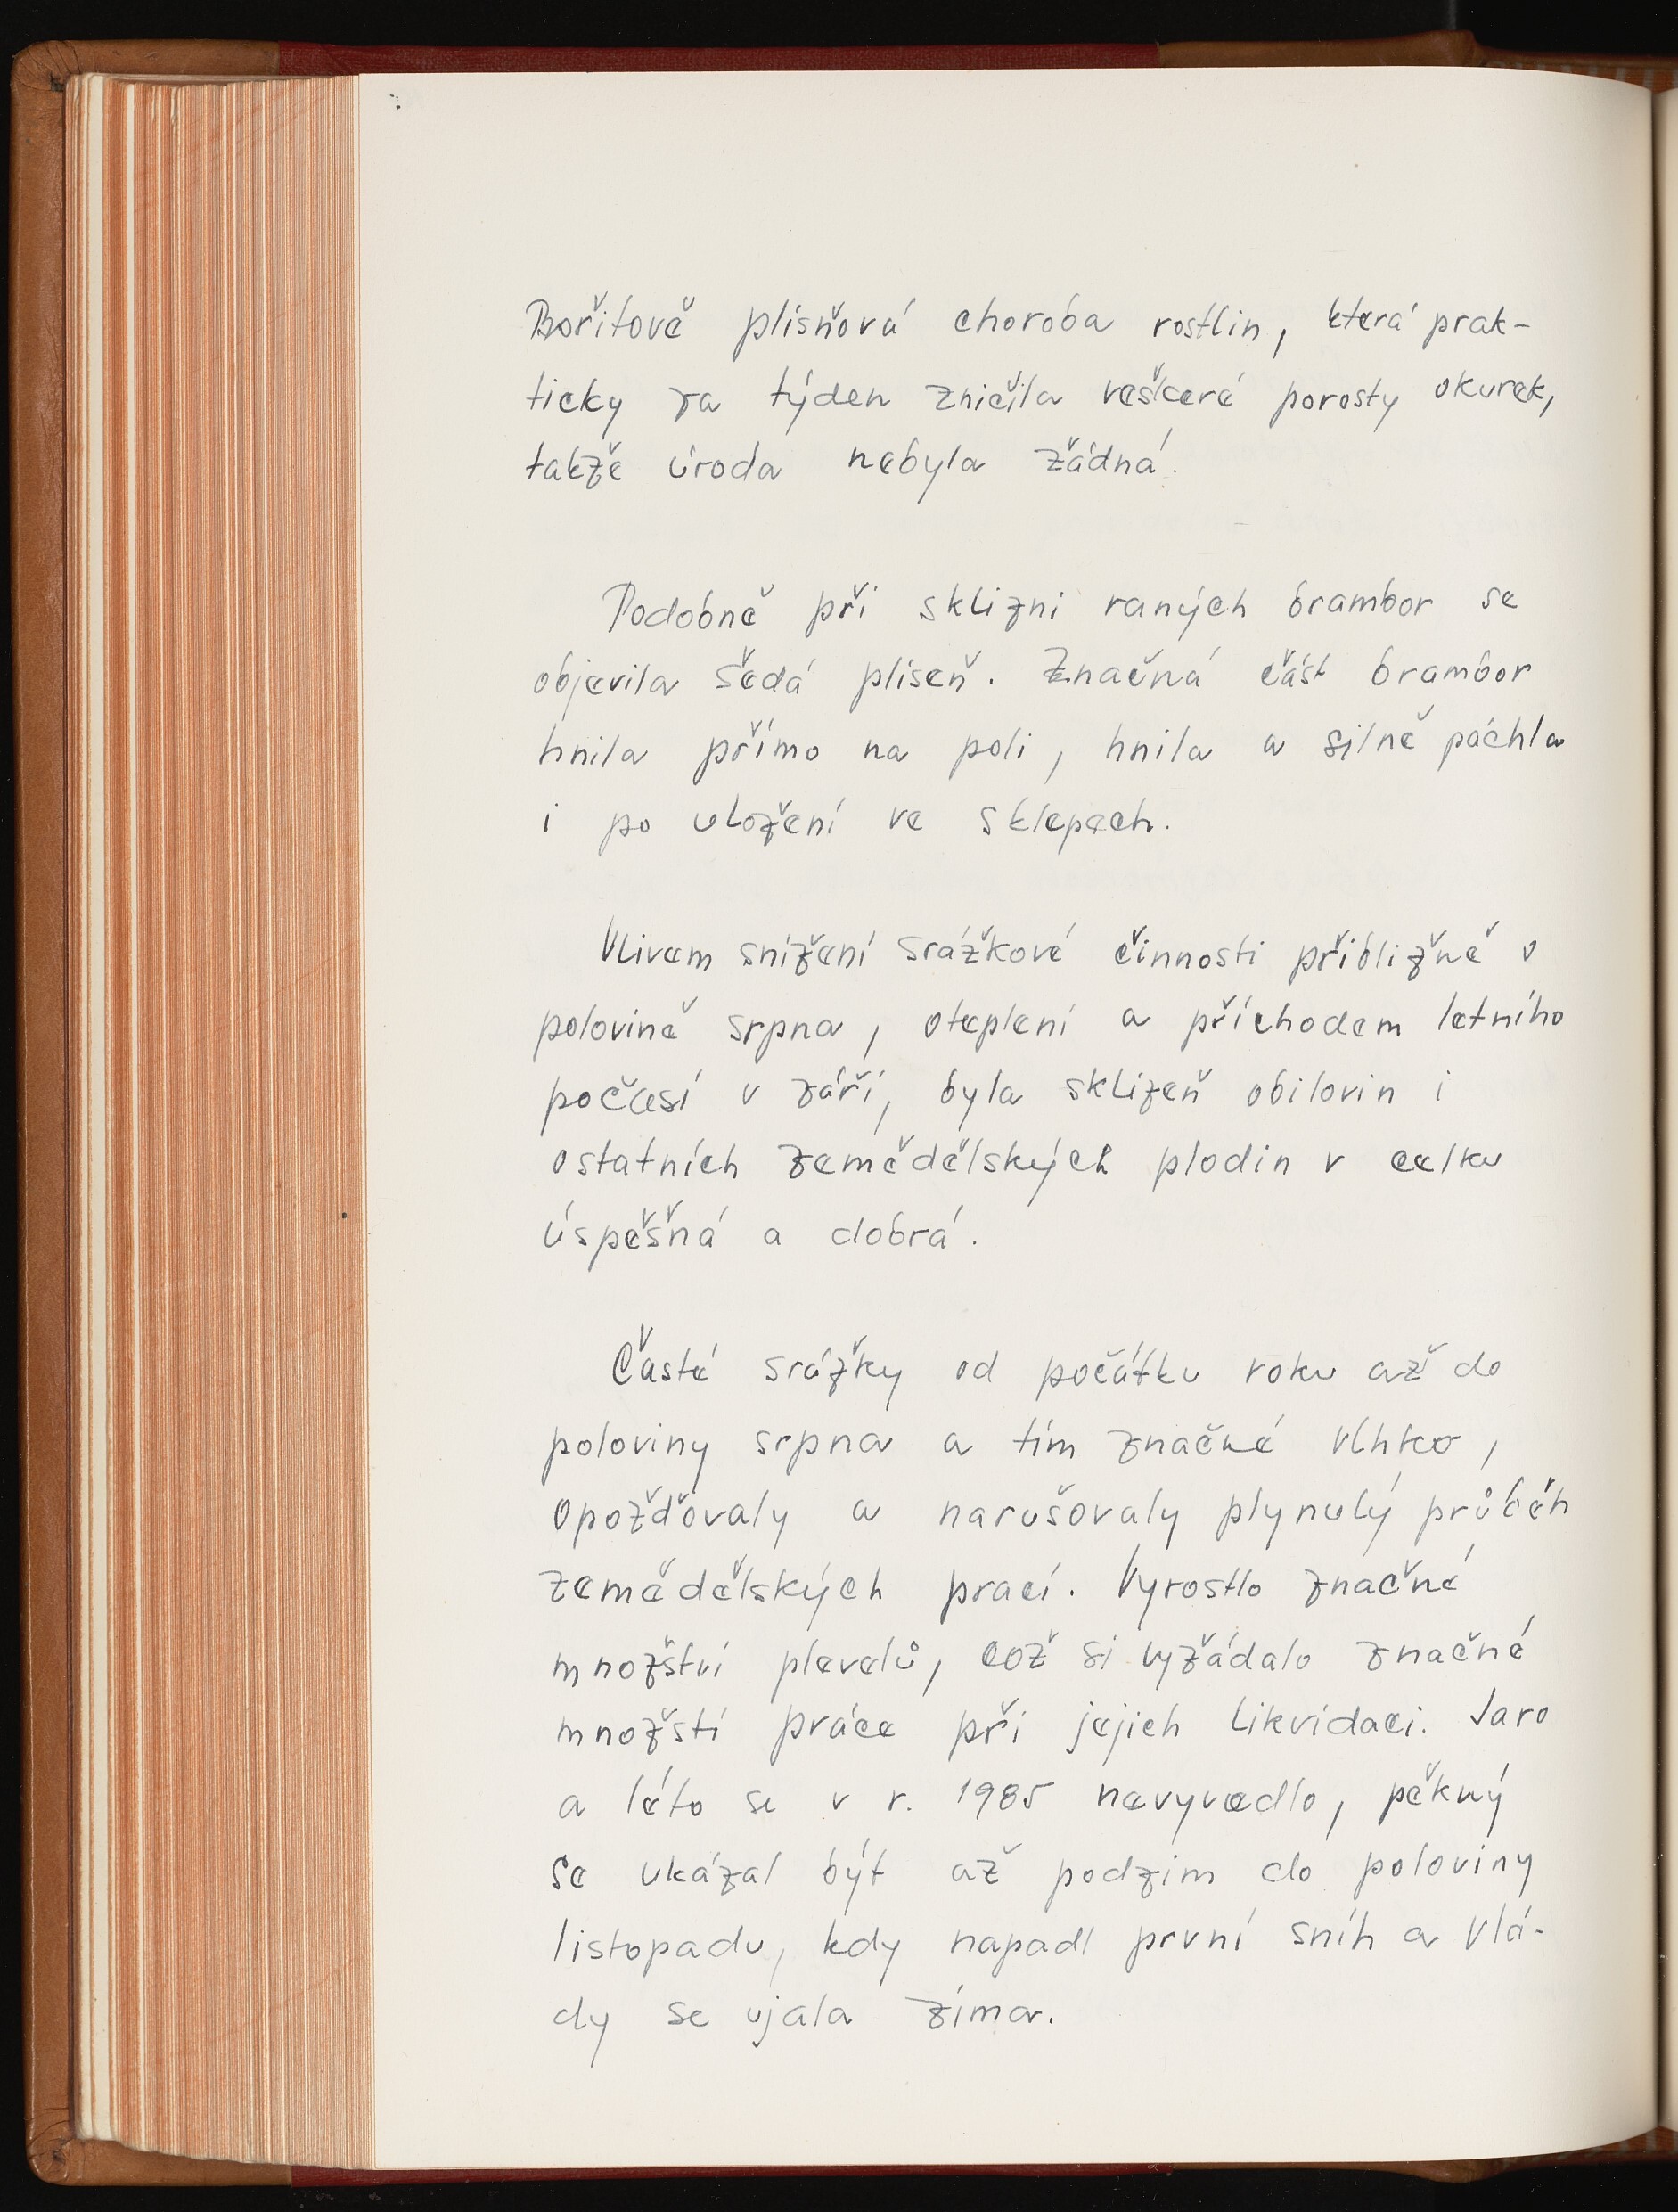 Bořitově plísňová choroba rostlin, která prak-
ticky za týden zničila veškeré porosty okurek,
takže úroda nebyla žádná.
Podobně při sklizni raných brambor se
objevila šedá plíseň. Značná část brambor
hnila přímo na poli, hnila a silně páchla
i po uložení ve sklepech.
Vlivem snížení srážkové činnosti přibližně v
polovině srpna, oteplení a příchodem letního
počasí v září, byla sklizeň obilovin i
ostatních zemědělských plodin v celku
úspěšná a dobrá.
Časté srážky od počátku roku až do
poloviny srpna a tím značné vlhko,
opožďovaly a narušovaly plynulý průběh
zemědělských prací. Vyrostlo značné
množství plevelů, což si vyžádalo značné
množstí práce při jejich likvidaci. Jaro
a léto se v r. 1985 nevyvedlo, pěkný
se ukázal být až podzim do poloviny
listopadu, kdy napadl první sníh a vlá-
dy se ujala zima.